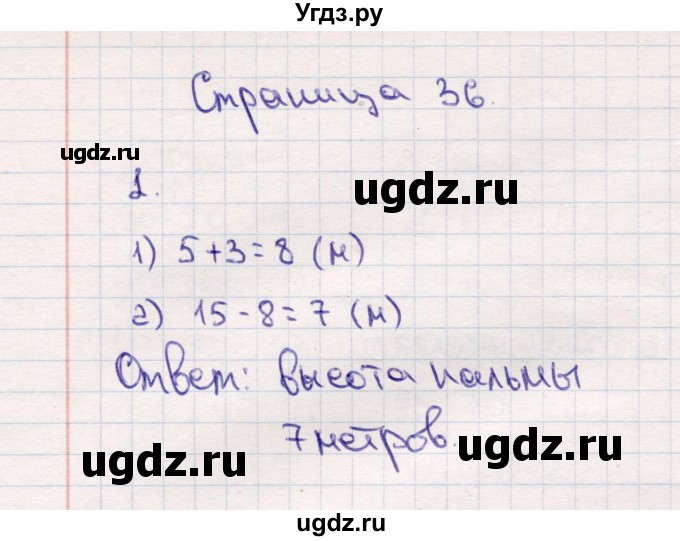 Угдз.ру
Страница 36.
ugdz.ru
ugdz.ru
1.
1) 5+3=8 (м)
2) 15-8=7 (м)
Ответ: высота пальмы
7 метров.
ugdz.ru
ugdz.ru
ugdz.ru